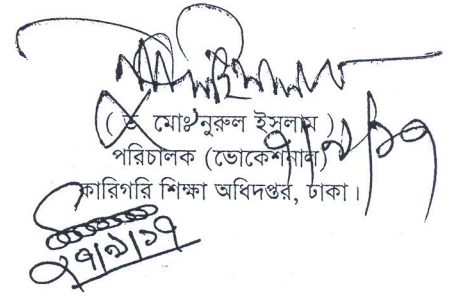 ( ড মোঃ নুরুল ইসলাম )
পরিচালক (ভোকেশনাল)
কারিগরি শিক্ষা অধিদপ্তর, ঢাকা।
২৭/৯/১৭